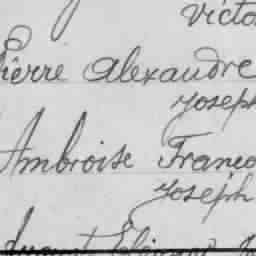 Victo
Pierre Alexandre
Joseph
Ambroise Franco
Joseph